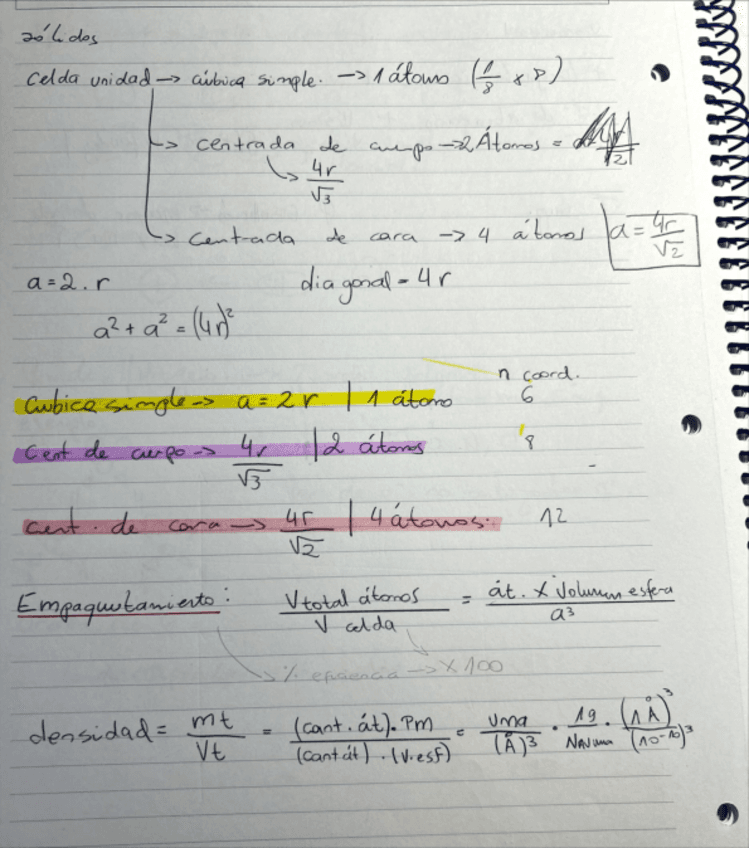 sólidos
Celda unidad → cúbica simple. → 1 átomo (1/8 x 8)
→ centrada de cuerpo → 2 Átomos =
↳ 4r/√3
→ Centrada de cara → 4 átomos a = 4r/√2
a = 2 . r diagonal = 4r
a² + a² = (4r)²
n coord.
Cubica simple → a = 2r | 1 átomo 6
Cent de cuerpo → 4r/√3 | 2 átomos 8
cent. de cara → 4r/√2 | 4 átomos. 12
Empaquetamiento: V total átomos / V celda = át. x Volumen esfera / a³
% eficiencia → x 100
densidad = mt/Vt = (cant. át). Pm / (cant át) . (V. esf) = uma/(Å)³ . 1g/NA uma . (1 Å)³/(10⁻¹⁰)³